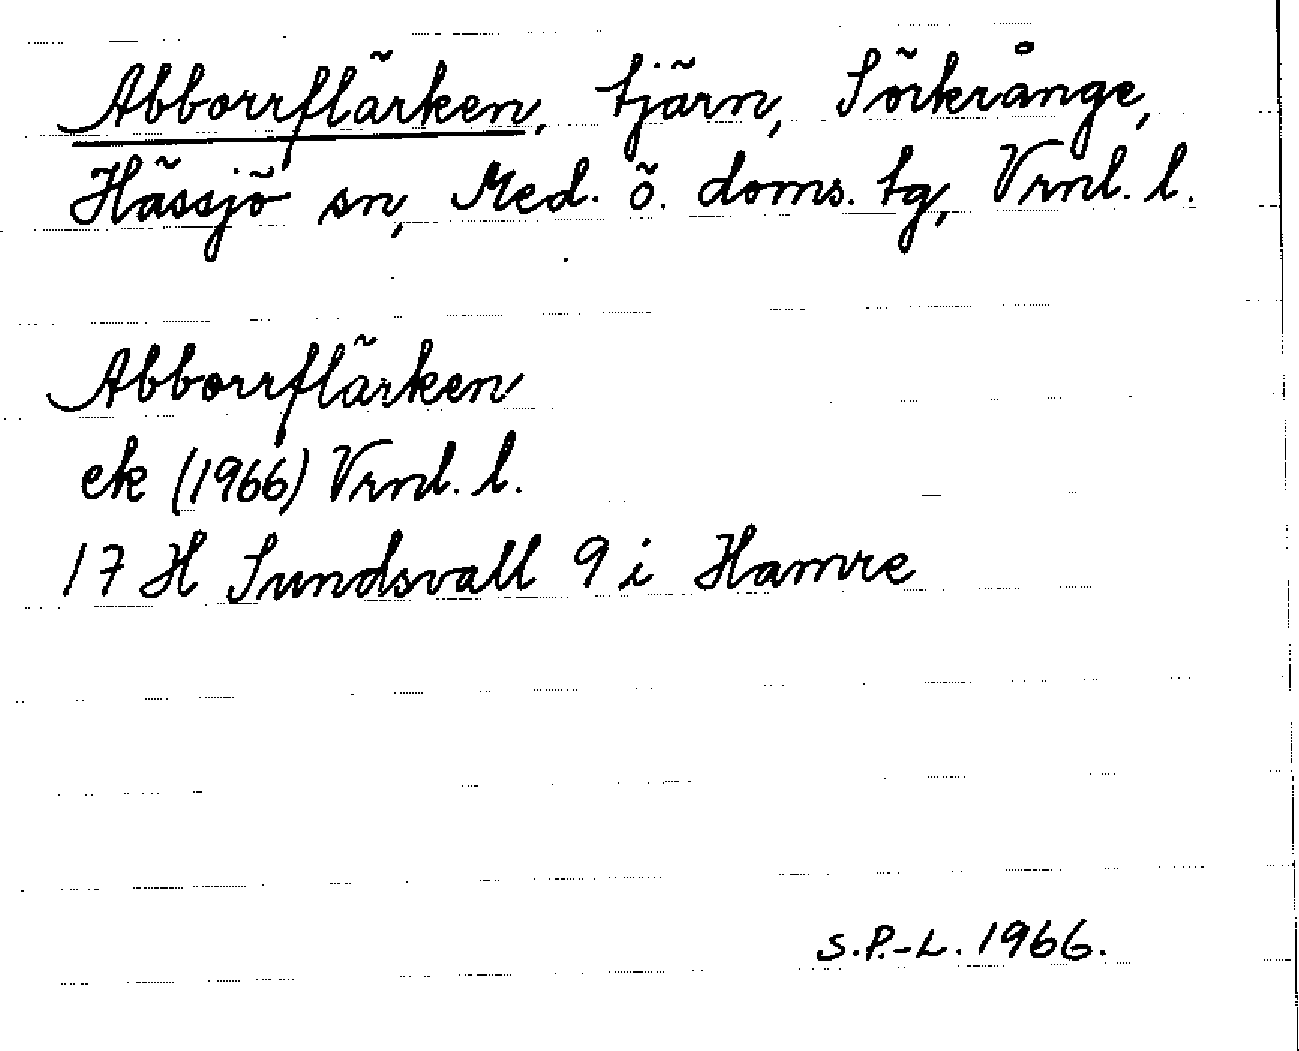 Abborrflärken, tjärn, Sörkrånge,
Hässjö sn, Med. ö. doms. tg, Vrnl. l.
Abborrflärken
ek (1966) Vrnl. l.
17 H Sundsvall 9 i Hamre
S.P.-L. 1966.